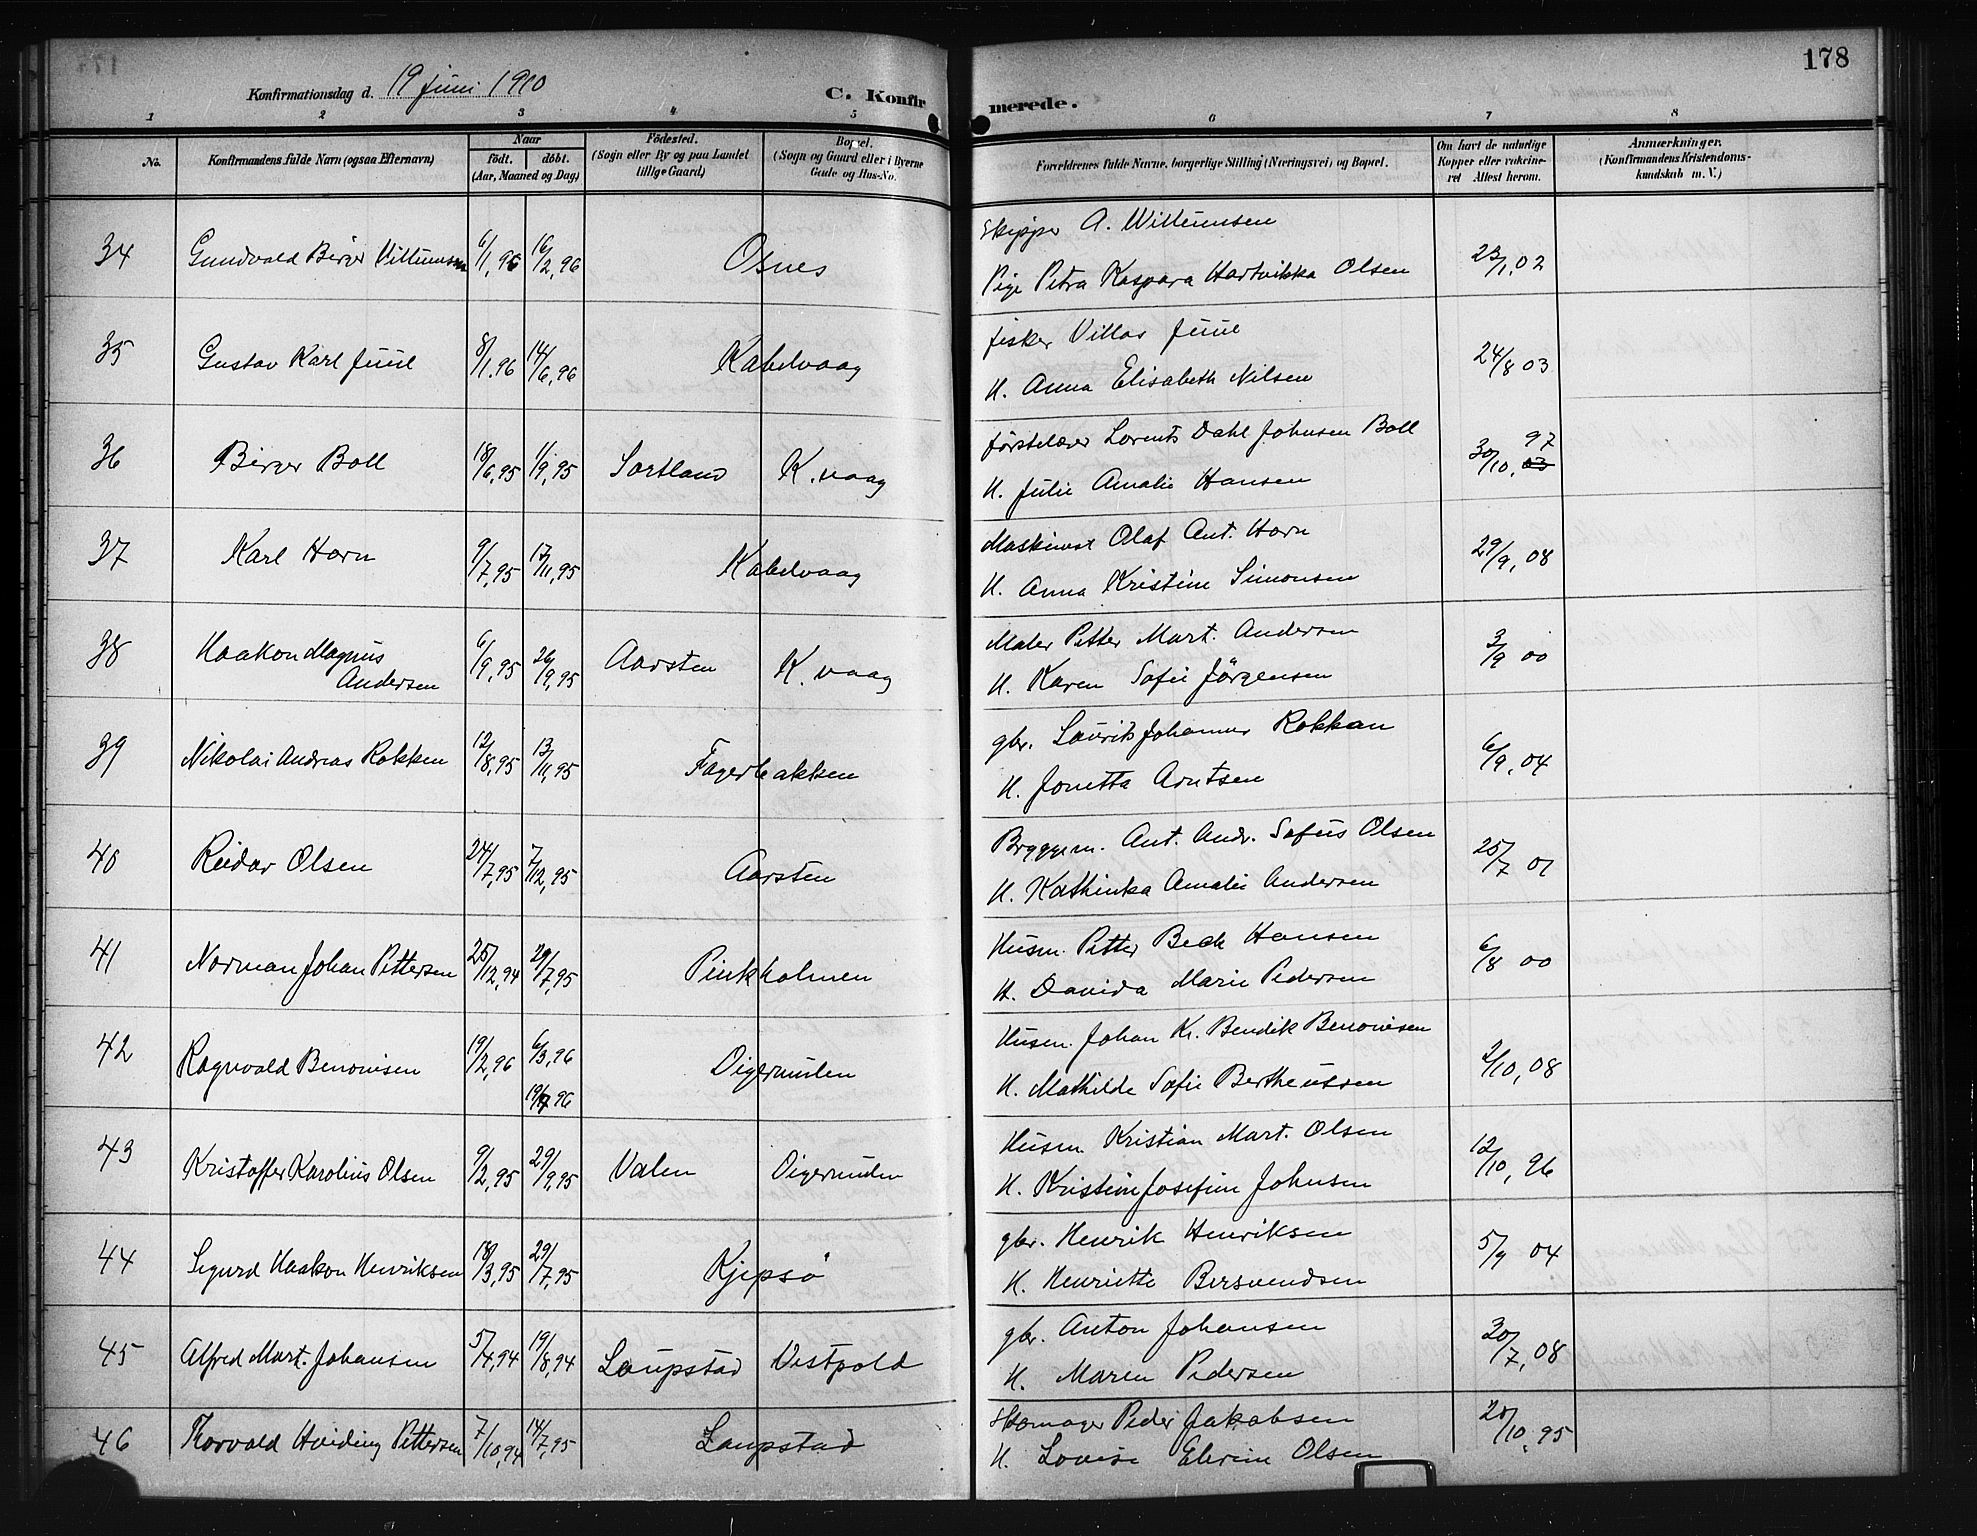 178
Konfirmationsdag d. 19 Juni 1910
C. Konfirmerede.
1 2 3 4 5 6 7 8
No. | Konfirmandens fulde Navn (ogsaa Efternavn) | Naar födt. döbt. (Aar, Maaned og Dag) | Födested. (Sogn eller By og paa Landet tillige Gaard) | Bopæl. (Sogn og Gaard eller i Byerne Gade og Hus-No. | Forældrenes fulde Navne, borgerlige Stilling (Næringsvei) og Bopæl. | Om havt de naturlige Kopper eller vakcineret Attest herom. | Anmærkninger. (Konfirmandens Kristendomskundskab m. V.)
34 Gundvald Birger Villumsen 6/1, 96 16/2, 96 Osnes Skipper A. Willumsen 23/1, 02
Pige Petra Kaspara Hartvikka Olsen
35 Gustav Karl Juul 8/1. 96 14/6, 96 Kabelvaag fisker Villas Juul 24/8 03
H. Anna Elisabeth Nilsen
36 Birger Boll 18/6, 95 1/9, 95 Sortland K.vaag førstelærer Lorents Dahl Johnsen Boll 30/10, 03 97
H. Julie Amalie Hansen
37 Karl Horn 9/7, 95 17/11, 95 Kabelvaag Maskinist Olaf Ant. Horn 29/9, 08
H. Anna Kristine Simonsen
38 Haakon Magnus 6/9, 95 26/9, 95 Aarsten K.vaag Maler Petter Mart. Andersen 3/9 00
Andersen H. Karen Sofie Jörgensen
39 Nikolai Andreas Rokken 12/8, 95 13/11, 95 Fagerbakken gbr. Laurits Johannes Rokkan 6/9, 04
H. Jonetta Arntsen
40 Reidar Olsen 24/7, 95 7/12, 95 Aarsten Bryggem. Ant. Andr. Sofus Olsen 25/7 01
H. Kathinka Amalie Andersen
41 Norman Johan Pettersen 25/12, 94 29/7, 95 Pinkholmen Husm. Petter Beck Hansen 6/8 00
H. Davida Marie Pedersen
42 Ragnvald Benonisen 19/2, 96 6/3, 96 Digermulen Husm. Johan Kr. Bendik Benonisen 2/10, 08
96 H. Mathilde Sofie Bertheussen
43 Kristoffer Karolius Olsen 9/2, 95 29/9, 95 Valen Digermulen Husm Kristian Mart. Olsen 12/10, 96
H. Kristine Josefine Johnsen
44 Sigurd Haakon Henriksen 18/3, 95 29/7, 95 Kjepsö gbr. Henrik Henriksen 5/9 04
H. Henriette Bersvendsen
45 Alfred Mart. Johansen 5/4, 94 19/8, 94 Laupstad Vestpold gbr. Anton Johansen 30/7, 08
H. Maren Pedersen
46 Thorvald Hveding Pettersen 7/10, 94 14/7, 95 Laupstad Skomager Peder Jakobsen 20/10, 95
H. Lovise Olsen